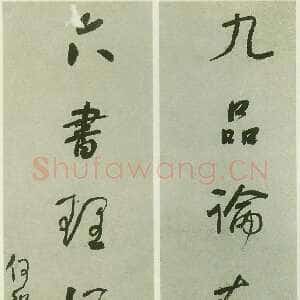 九品論
六書理
何
Shufawang.CN